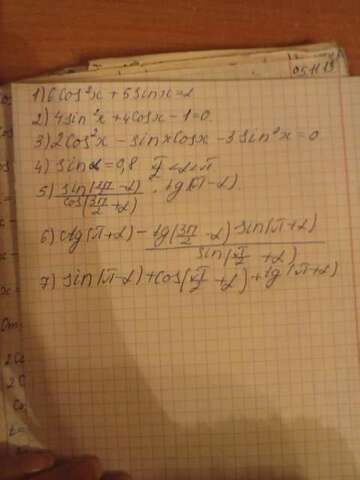 05.11.13
1) 6cos²x + 5sinx = 2
2) 4sin²x + 4cosx - 1 = 0.
3) 2cos²x - sinxcosx - 3sin²x = 0
4) sinα = 0,8 π/2 < α < π
5) sin(2π - α) / cos(3π/2 + α) · tg(π - α).
6) ctg(π + α) - tg(3π/2 - α) · sin(π + α) / sin(π/2 + α)
7) sin(π - α) + cos(π/2 + α) + tg(π + α)